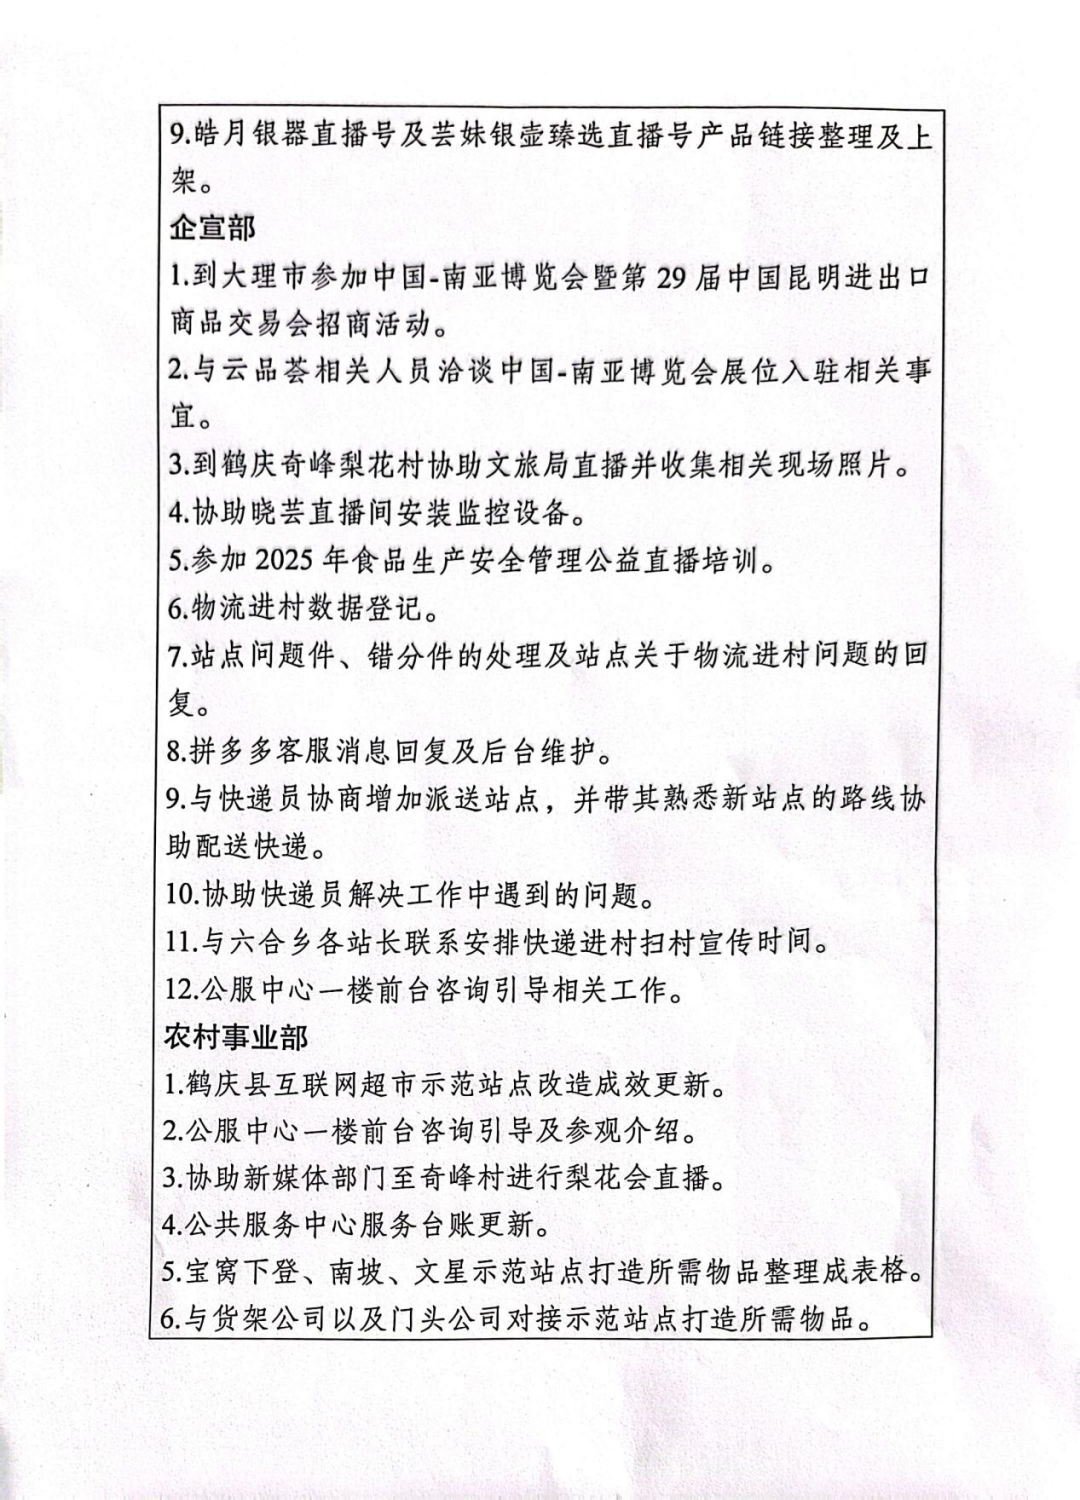 9.皓月银器直播号及芸妹银壶臻选直播号产品链接整理及上
架。
企宣部
1.到大理市参加中国-南亚博览会暨第 29 届中国昆明进出口
商品交易会招商活动。
2.与云品荟相关人员洽谈中国-南亚博览会展位入驻相关事
宜。
3.到鹤庆奇峰梨花村协助文旅局直播并收集相关现场照片。
4.协助晓芸直播间安装监控设备。
5.参加 2025 年食品生产安全管理公益直播培训。
6.物流进村数据登记。
7.站点问题件、错分件的处理及站点关于物流进村问题的回
复。
8.拼多多客服消息回复及后台维护。
9.与快递员协商增加派送站点，并带其熟悉新站点的路线协
助配送快递。
10.协助快递员解决工作中遇到的问题。
11.与六合乡各站长联系安排快递进村扫村宣传时间。
12.公服中心一楼前台咨询引导相关工作。
农村事业部
1.鹤庆县互联网超市示范站点改造成效更新。
2.公服中心一楼前台咨询引导及参观介绍。
3.协助新媒体部门至奇峰村进行梨花会直播。
4.公共服务中心服务台账更新。
5.宝窝下登、南坡、文星示范站点打造所需物品整理成表格。
6.与货架公司以及门头公司对接示范站点打造所需物品。